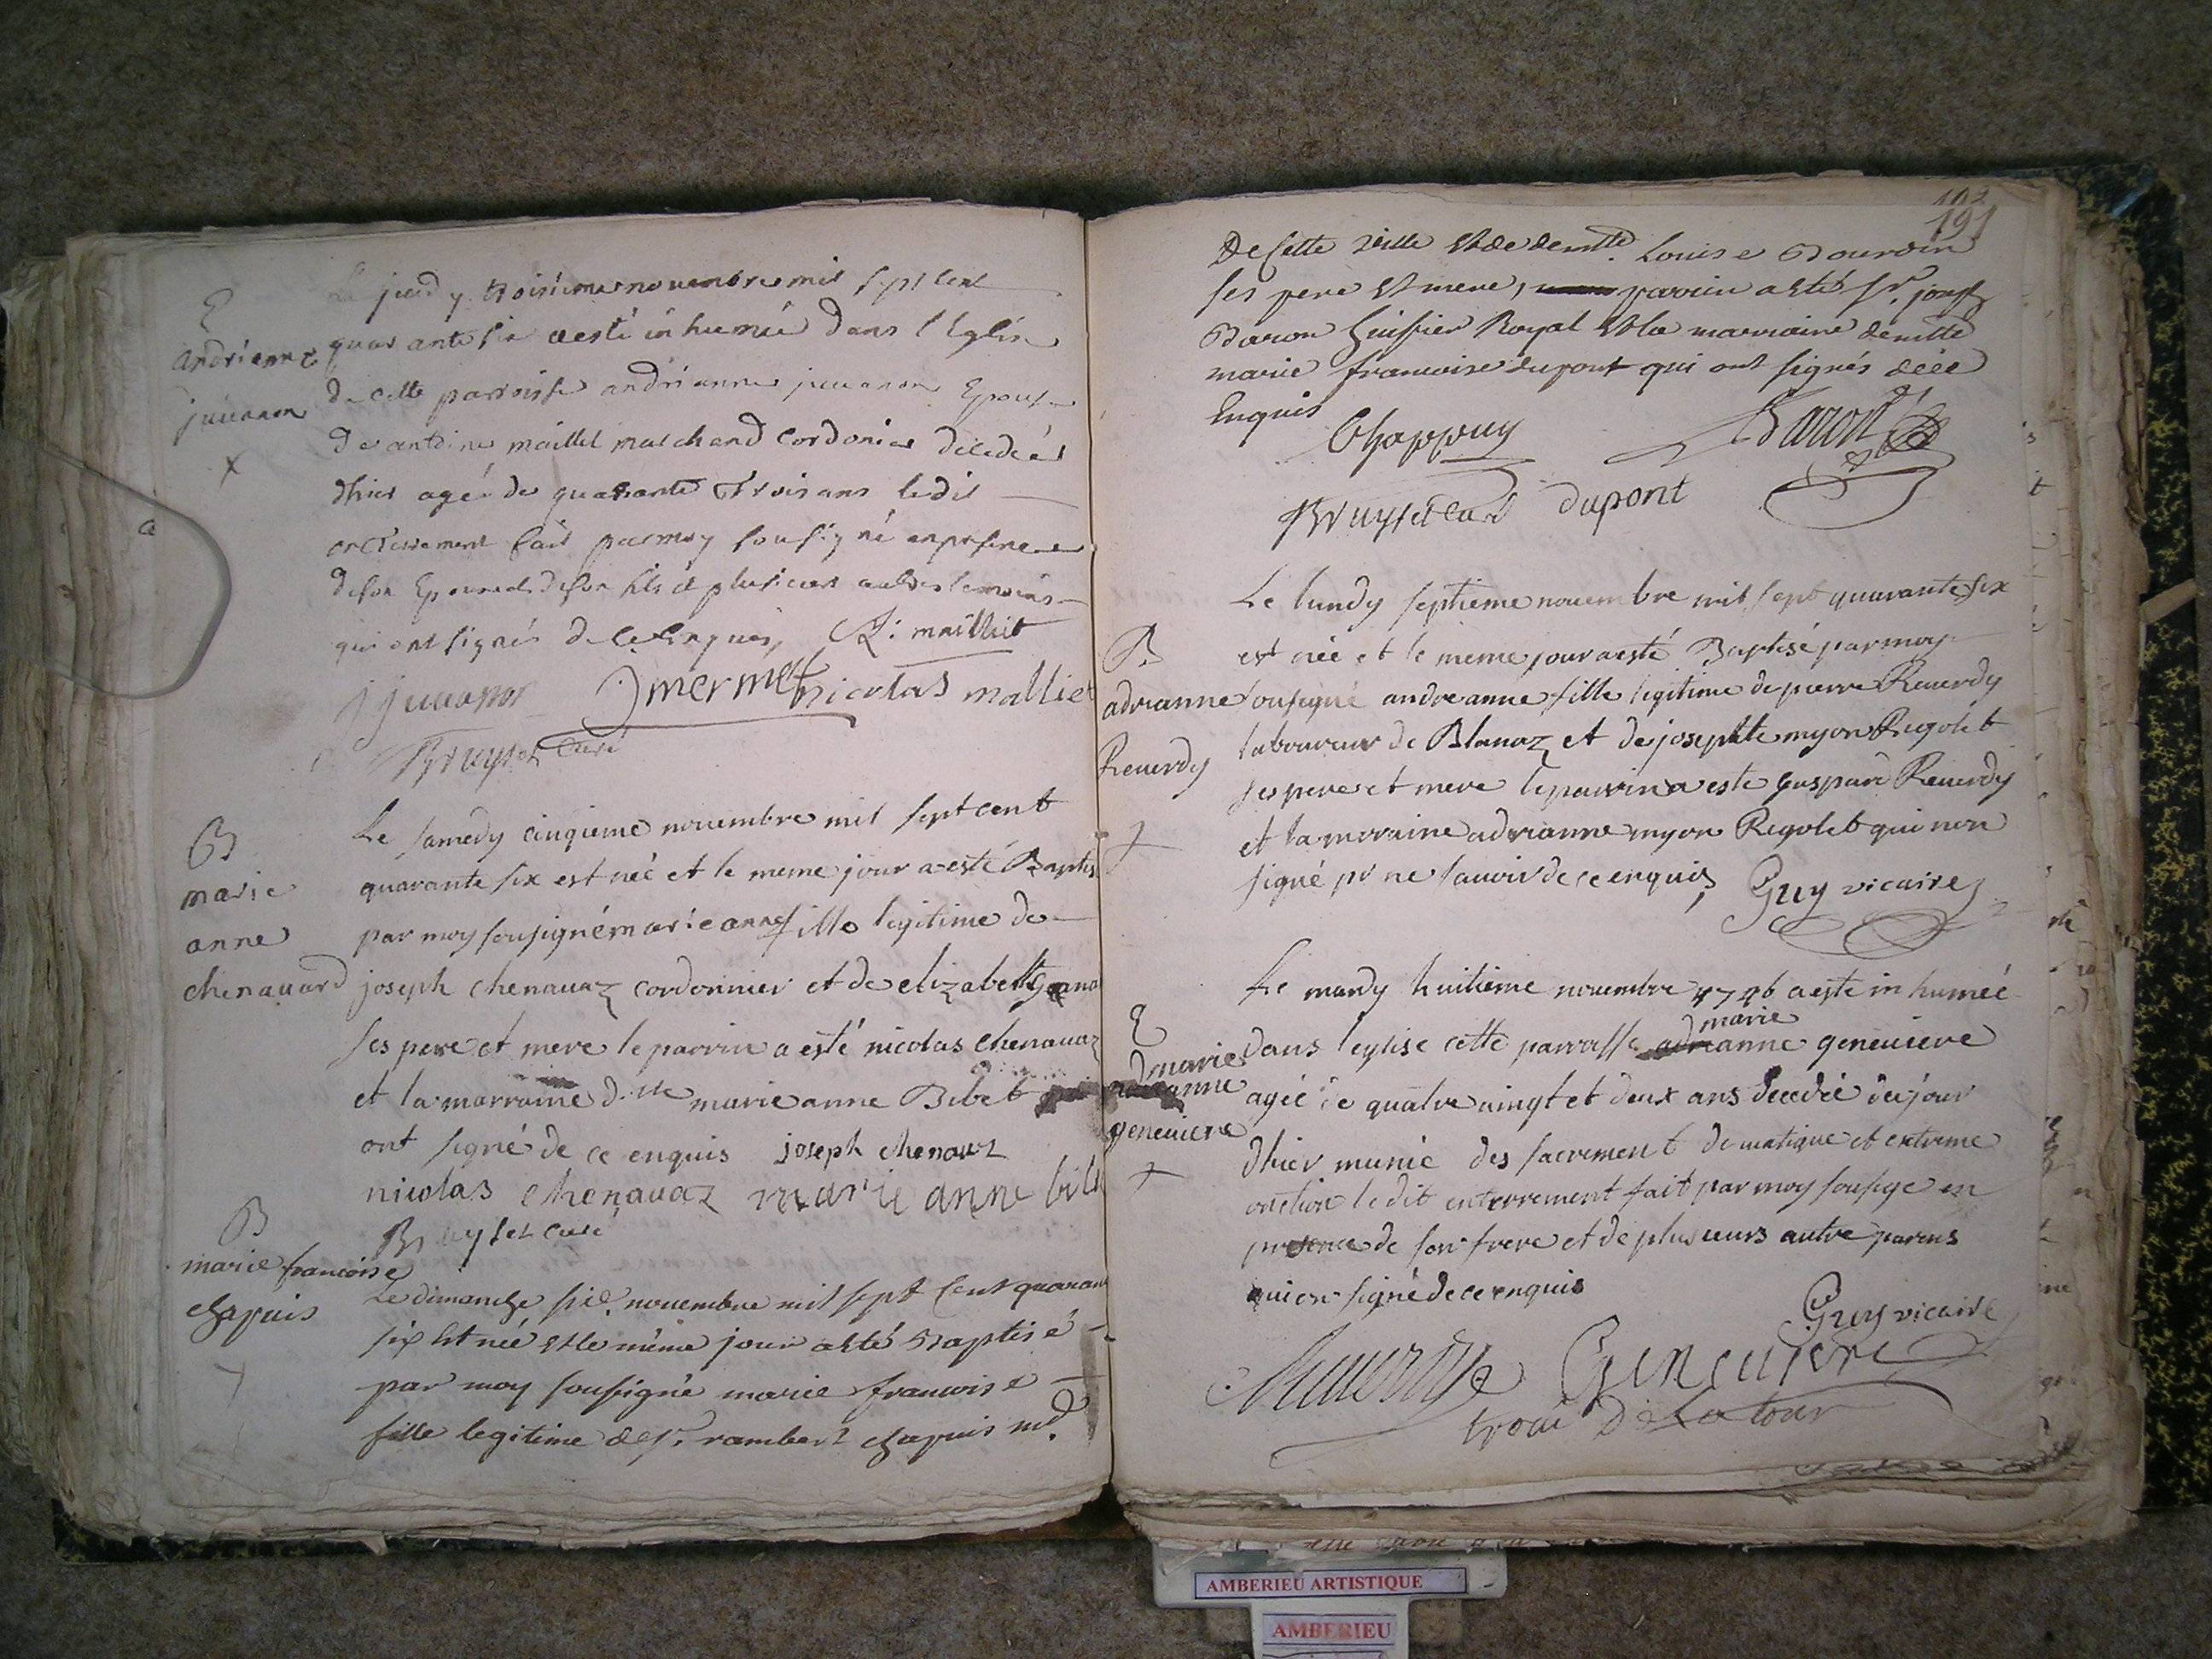 E
andrienne
juuanon
x
Le jeudy troisieme novembre mil sept cent
quarante six a esté inhumée dans l'Eglise
de cette parroisse andrianne juuanon Epouse
de antoine maillet marchand Cordonier décedée
dhier agée de quarante & trois ans ledit
enterrement fait par moy sousigné en presence
de son Epoux et de son fils et plusieurs autres temoins
qui ont signés de ce Enquis, R: maillet
j juuanon mermet nicolas malliet
Bruyset curé
B
marie
anne
chenauard
Le samedy cinqieme nouembre mil sept cent
quarante six est neé et le meme jour a esté Baptis
par moy sousigné marie anne fille legitime de
joseph chenauaz cordonnier et de elizabeth
ses pere et mere le parrin a esté nicolas chenauaz
et la marraine d.lle marie anne Bibet
ont signé de ce enquis joseph chenauz
nicolas chenauaz marie anne bib
Bruyset curé
B
marie francoise
chapuis
Le dimanche six.e nouembre mil sept Cent quarant
six Est née Et le même jour a Eté Baptisé
par moy sousigné marie francoise
fille legitime de Sr. rambert chapuis md.
102
191
De Cette ville Et de demlle. Louise Bourdin
ses pere Et mere, parrein a Eté Sr. joseph
Baron huissier Royal Et la marraine demlle
marie francoise dupont qui ont signés de ce
Enquis
Chappuy Baron
Bruyset curé dupont
B
adrianne
Reuerdy
Le lundy septieme nouembre mil sept quarante six
est née et le meme jour a esté Baptisé par moy
sousigné andreanne fille legitime de pierre Reuerdy
laboureur de Blanaz et de josephte myon Rigolet
ses pere et mere le parrin a este gaspard Reuerdy
et la moraine adrianne myon Rigolet qui non
signé pr ne sauoir de ce enquis Guy vicaire
E
marie
anne
geneuiere
Le mardy huitieme nouembre 1746 a este inhumeé
dans leglise cette parroisse adrianne marie geneuiere
agée de quatre uingt et deux ans decedée dèjour
dhier munie des sacrement de uiatique et extreme
onction le dit enterrement fait par moy sousige en
presence de son frere et de plusieurs autre parens
qui on signé de ce enquis
Guy vicaire
Geneuiere
De La tour
AMBERIEU ARTISTIQUE
AMBERIEU